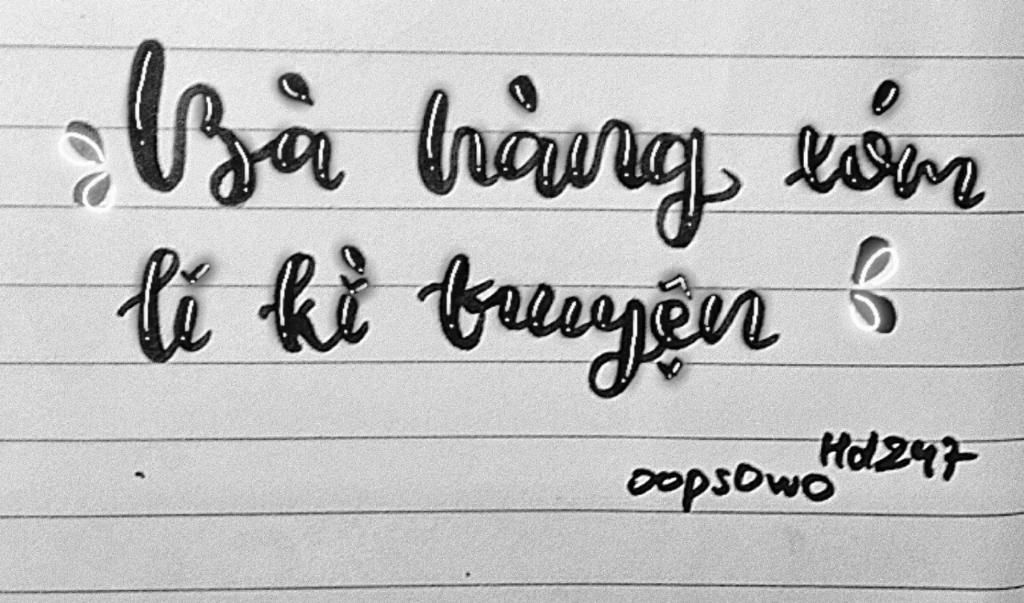 Bà hàng xóm
lí kì truyện
Hd247
oopsOwO